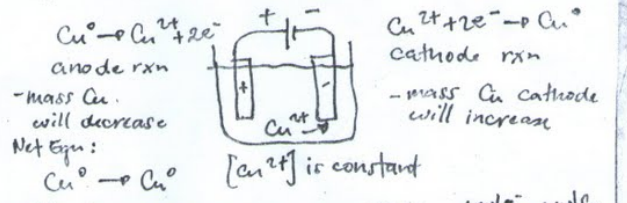 Cu° → Cu²⁺ + 2e⁻
anode rxn
- mass Cu.
will decrease
Net Eqn:
Cu° → Cu°
+ -
+ -
Cu²⁺
[Cu²⁺] is constant
Cu²⁺ + 2e⁻ → Cu°
cathode rxn
- mass Cu cathode
will increase